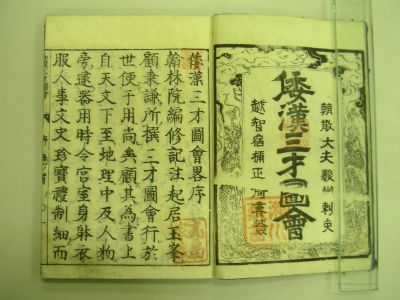 朝散大夫駿州刺史
倭漢三才圖會
越智宿祢正
倭漢三才圖會畧序
翰林院編修記注起居玉峯
顧秉謙所撰三才圖會行於
世便于用尚矣顧其為書上
自天文下至地理中及人物
旁逮器用時令宮室身躰衣
服人事文史珍寶禮制細而